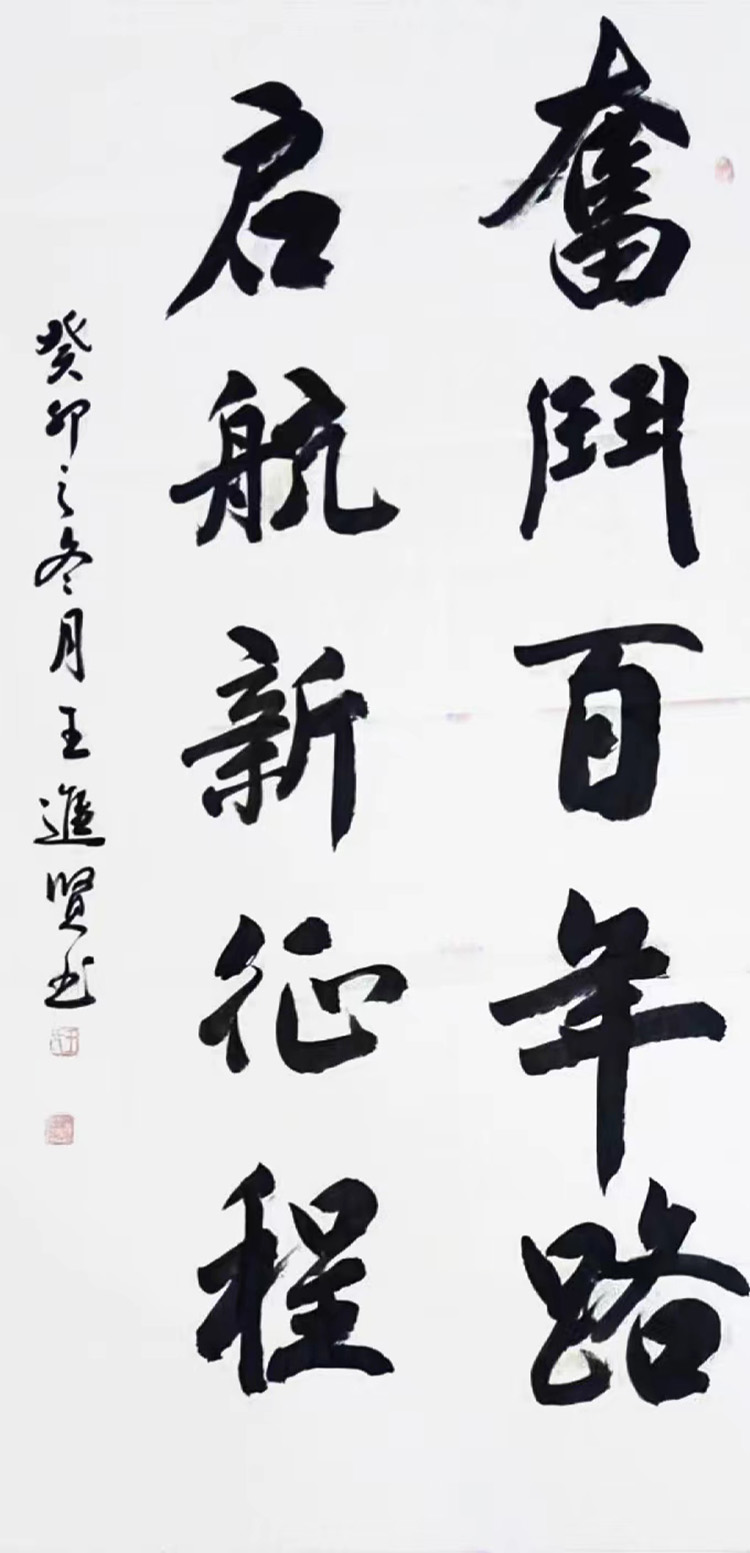 奮鬥百年路
启航新征程
癸卯之冬月王進賢书